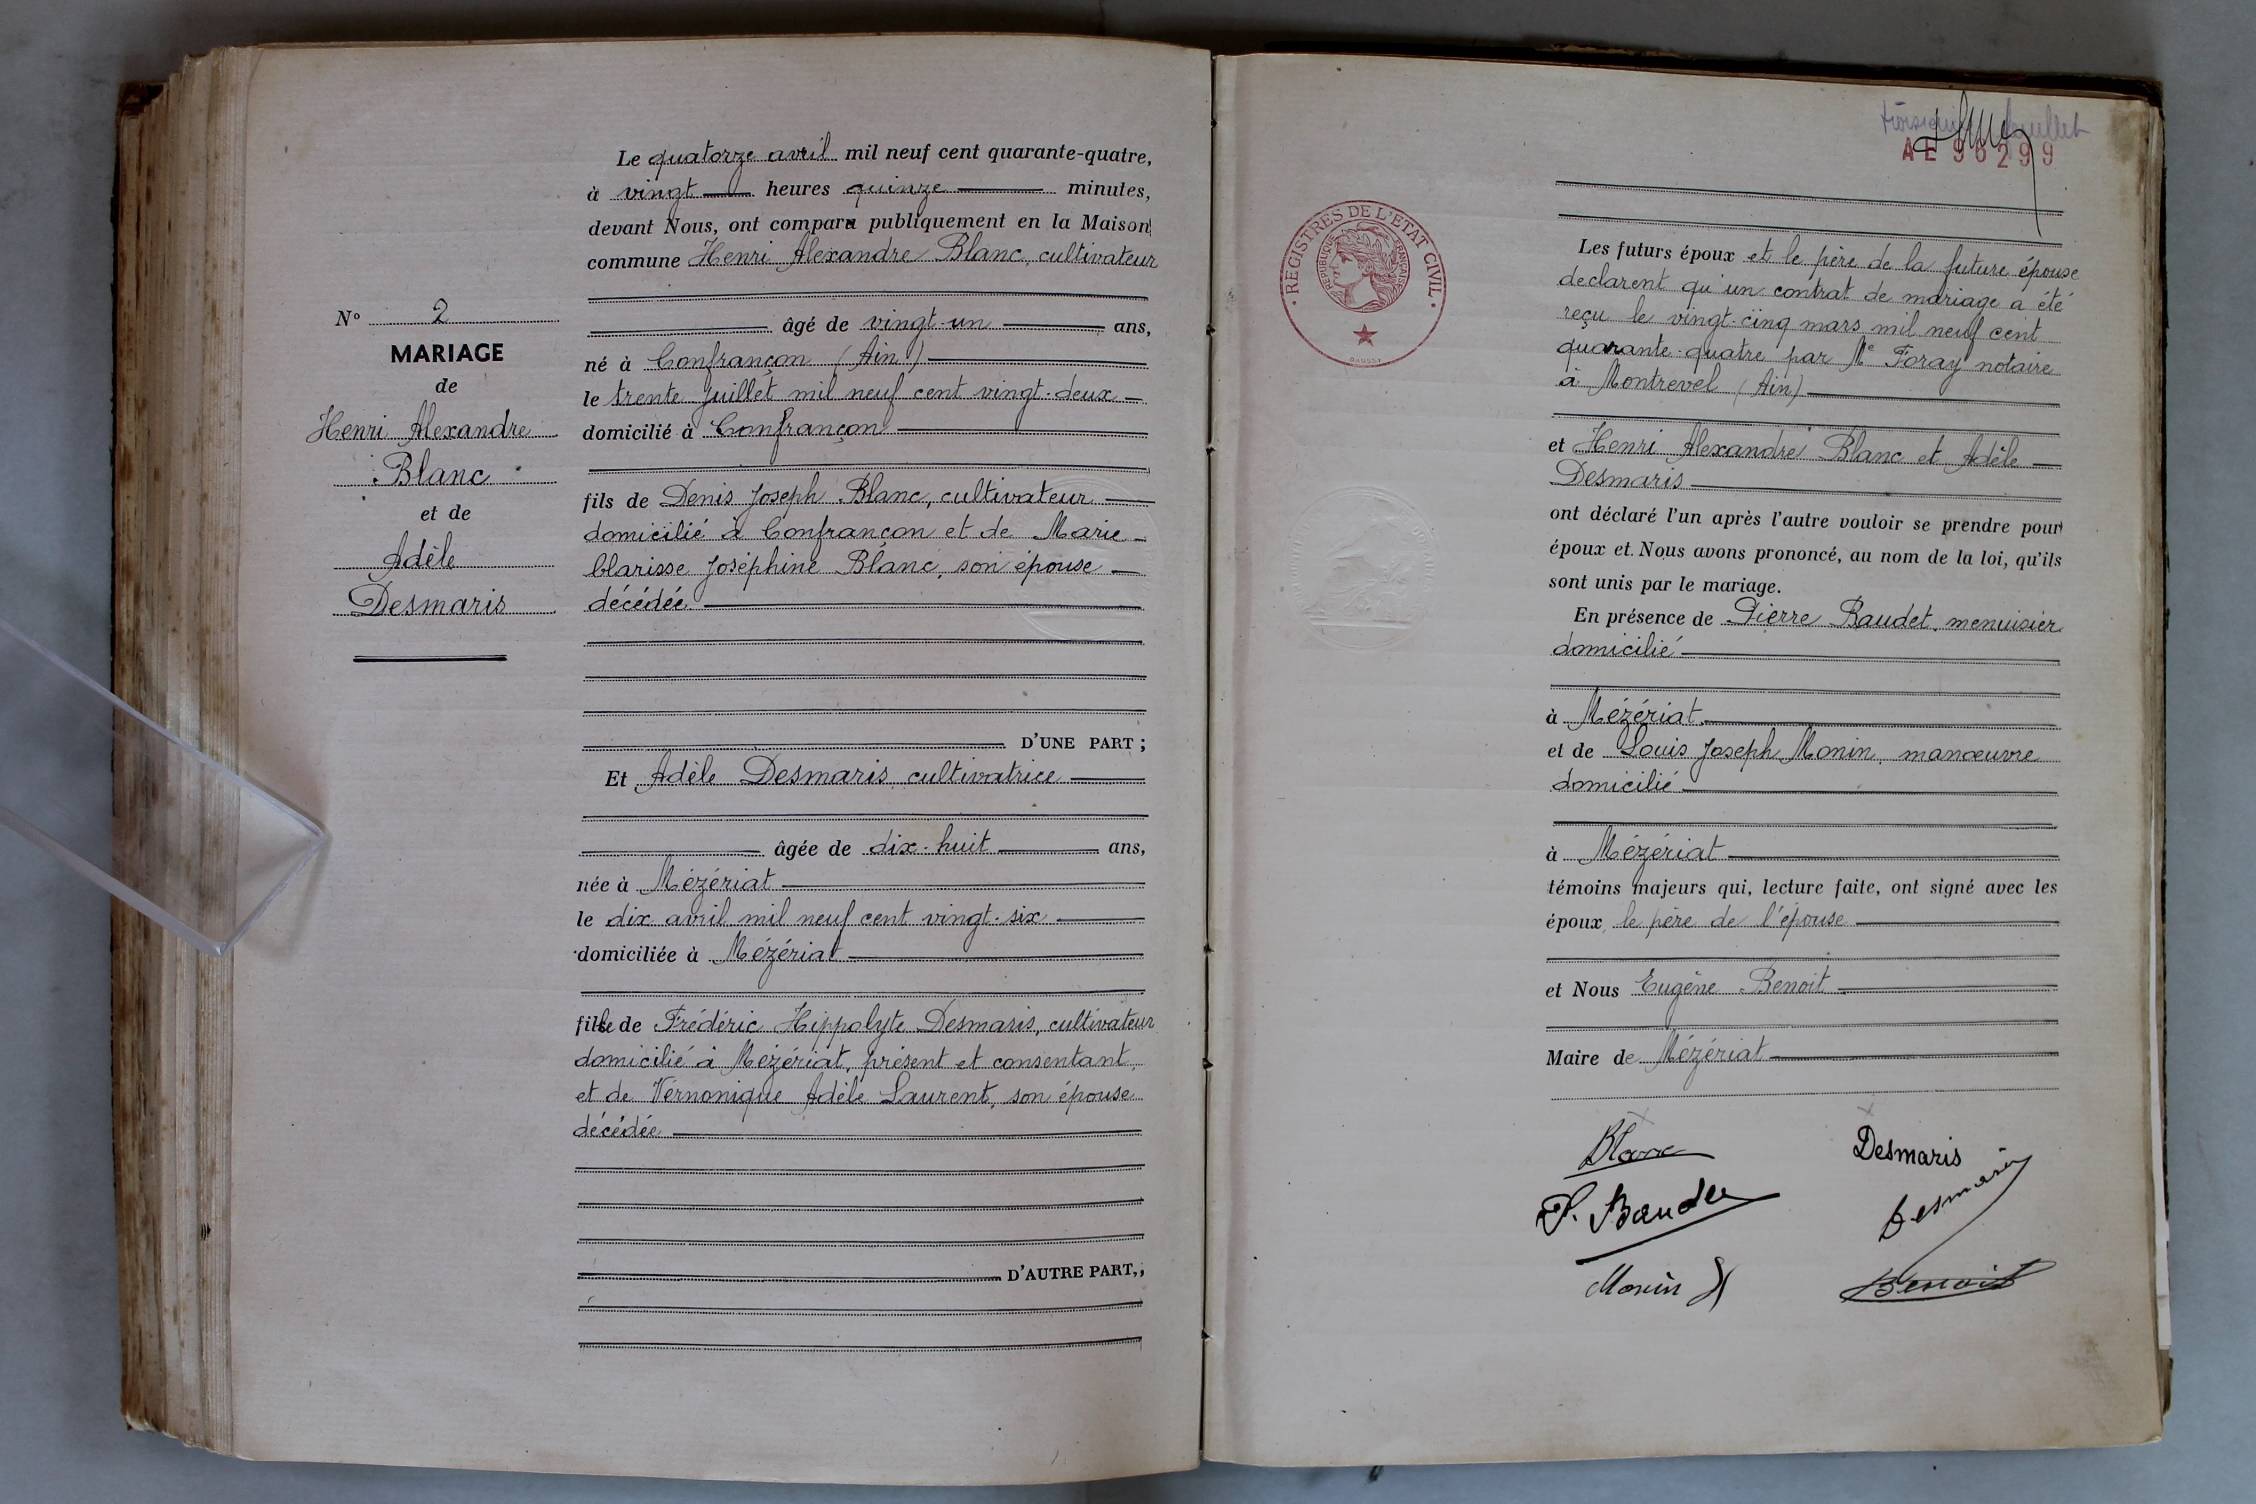 N° 2
MARIAGE
de
Henri Alexandre
Blanc
et de
Adèle
Desmaris
Le quatorze avril mil neuf cent quarante-quatre,
à vingt heures quinze minutes,
devant Nous, ont comparu publiquement en la Maison
commune Henri Alexandre Blanc, cultivateur
âgé de vingt-un ans,
né à Confrançon (Ain)
le trente juillet mil neuf cent vingt-deux
domicilié à Confrançon
fils de Denis Joseph Blanc, cultivateur
domicilié à Confrançon et de Marie
Clarisse Joséphine Blanc, son épouse
décédée
D'UNE PART ;
Et Adèle Desmaris cultivatrice
âgée de dix-huit ans,
née à Mézériat
le dix avril mil neuf cent vingt-six
domiciliée à Mézériat
fille de Frédéric Hippolyte Desmaris, cultivateur
domicilié à Mézériat, présent et consentant
et de Vérnonique Adèle Laurent, son épouse
décédée
D'AUTRE PART,;
feuillet
AE 96299
REGISTRES DE L'ETAT CIVIL
REPUBLIQUE FRANÇAISE
Les futurs époux et le père de la future épouse
déclarent qu'un contrat de mariage a été
reçu le vingt-cinq mars mil neuf cent
quarante-quatre par Me Foray notaire
à Montrevel (Ain)
et Henri Alexandre Blanc et Adèle
Desmaris
ont déclaré l'un après l'autre vouloir se prendre pour
époux et Nous avons prononcé, au nom de la loi, qu'ils
sont unis par le mariage.
En présence de Pierre Baudet, menuisier
domicilié
à Mézériat
et de Louis Joseph Monin, manœuvre
domicilié
à Mézériat
témoins majeurs qui, lecture faite, ont signé avec les
époux, le père de l'épouse
et Nous Eugène Benoit
Maire de Mézériat
Blanc Desmaris
P. Baudet Desmaris
Monin Benoit